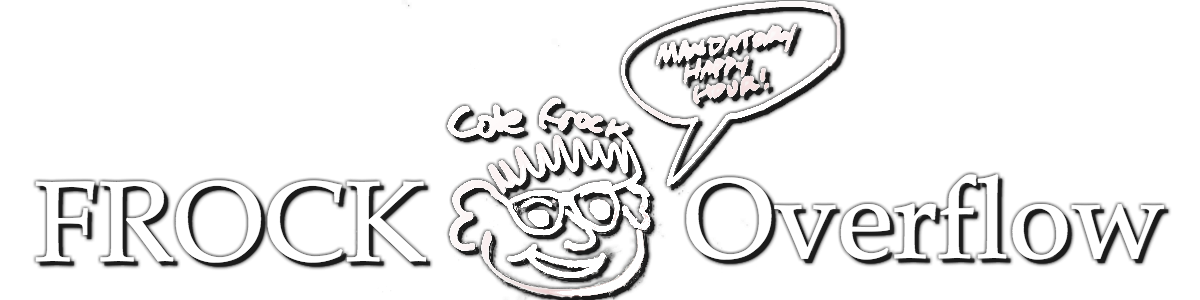 MANDATORY
HAPPY
HOUR!
Cole Frock
FROCK Overflow